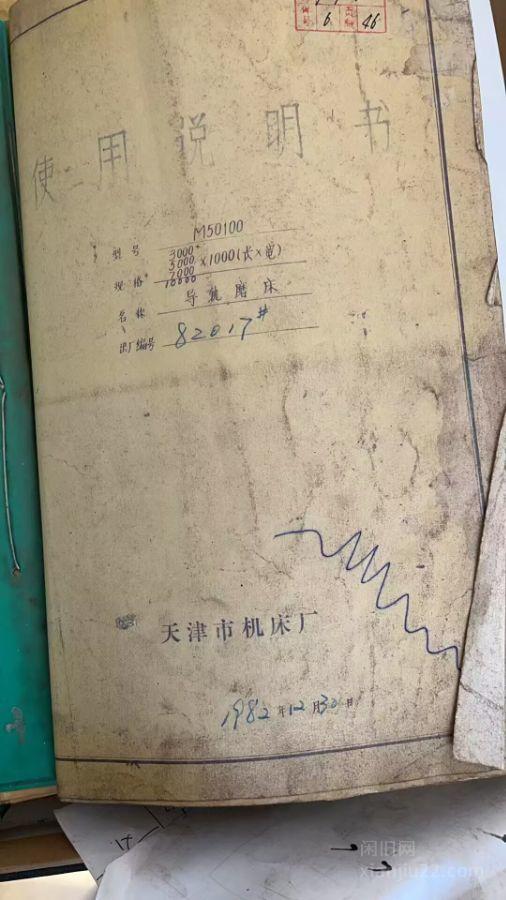 6
46
使用说明书
型号 M50100
3000
5000
规格 7000 ×1000(长×宽)
10000
名称 导轨磨床
出厂编号 82017#
天津市机床厂
1982年12月30日
闲旧网
xianjiu22.com